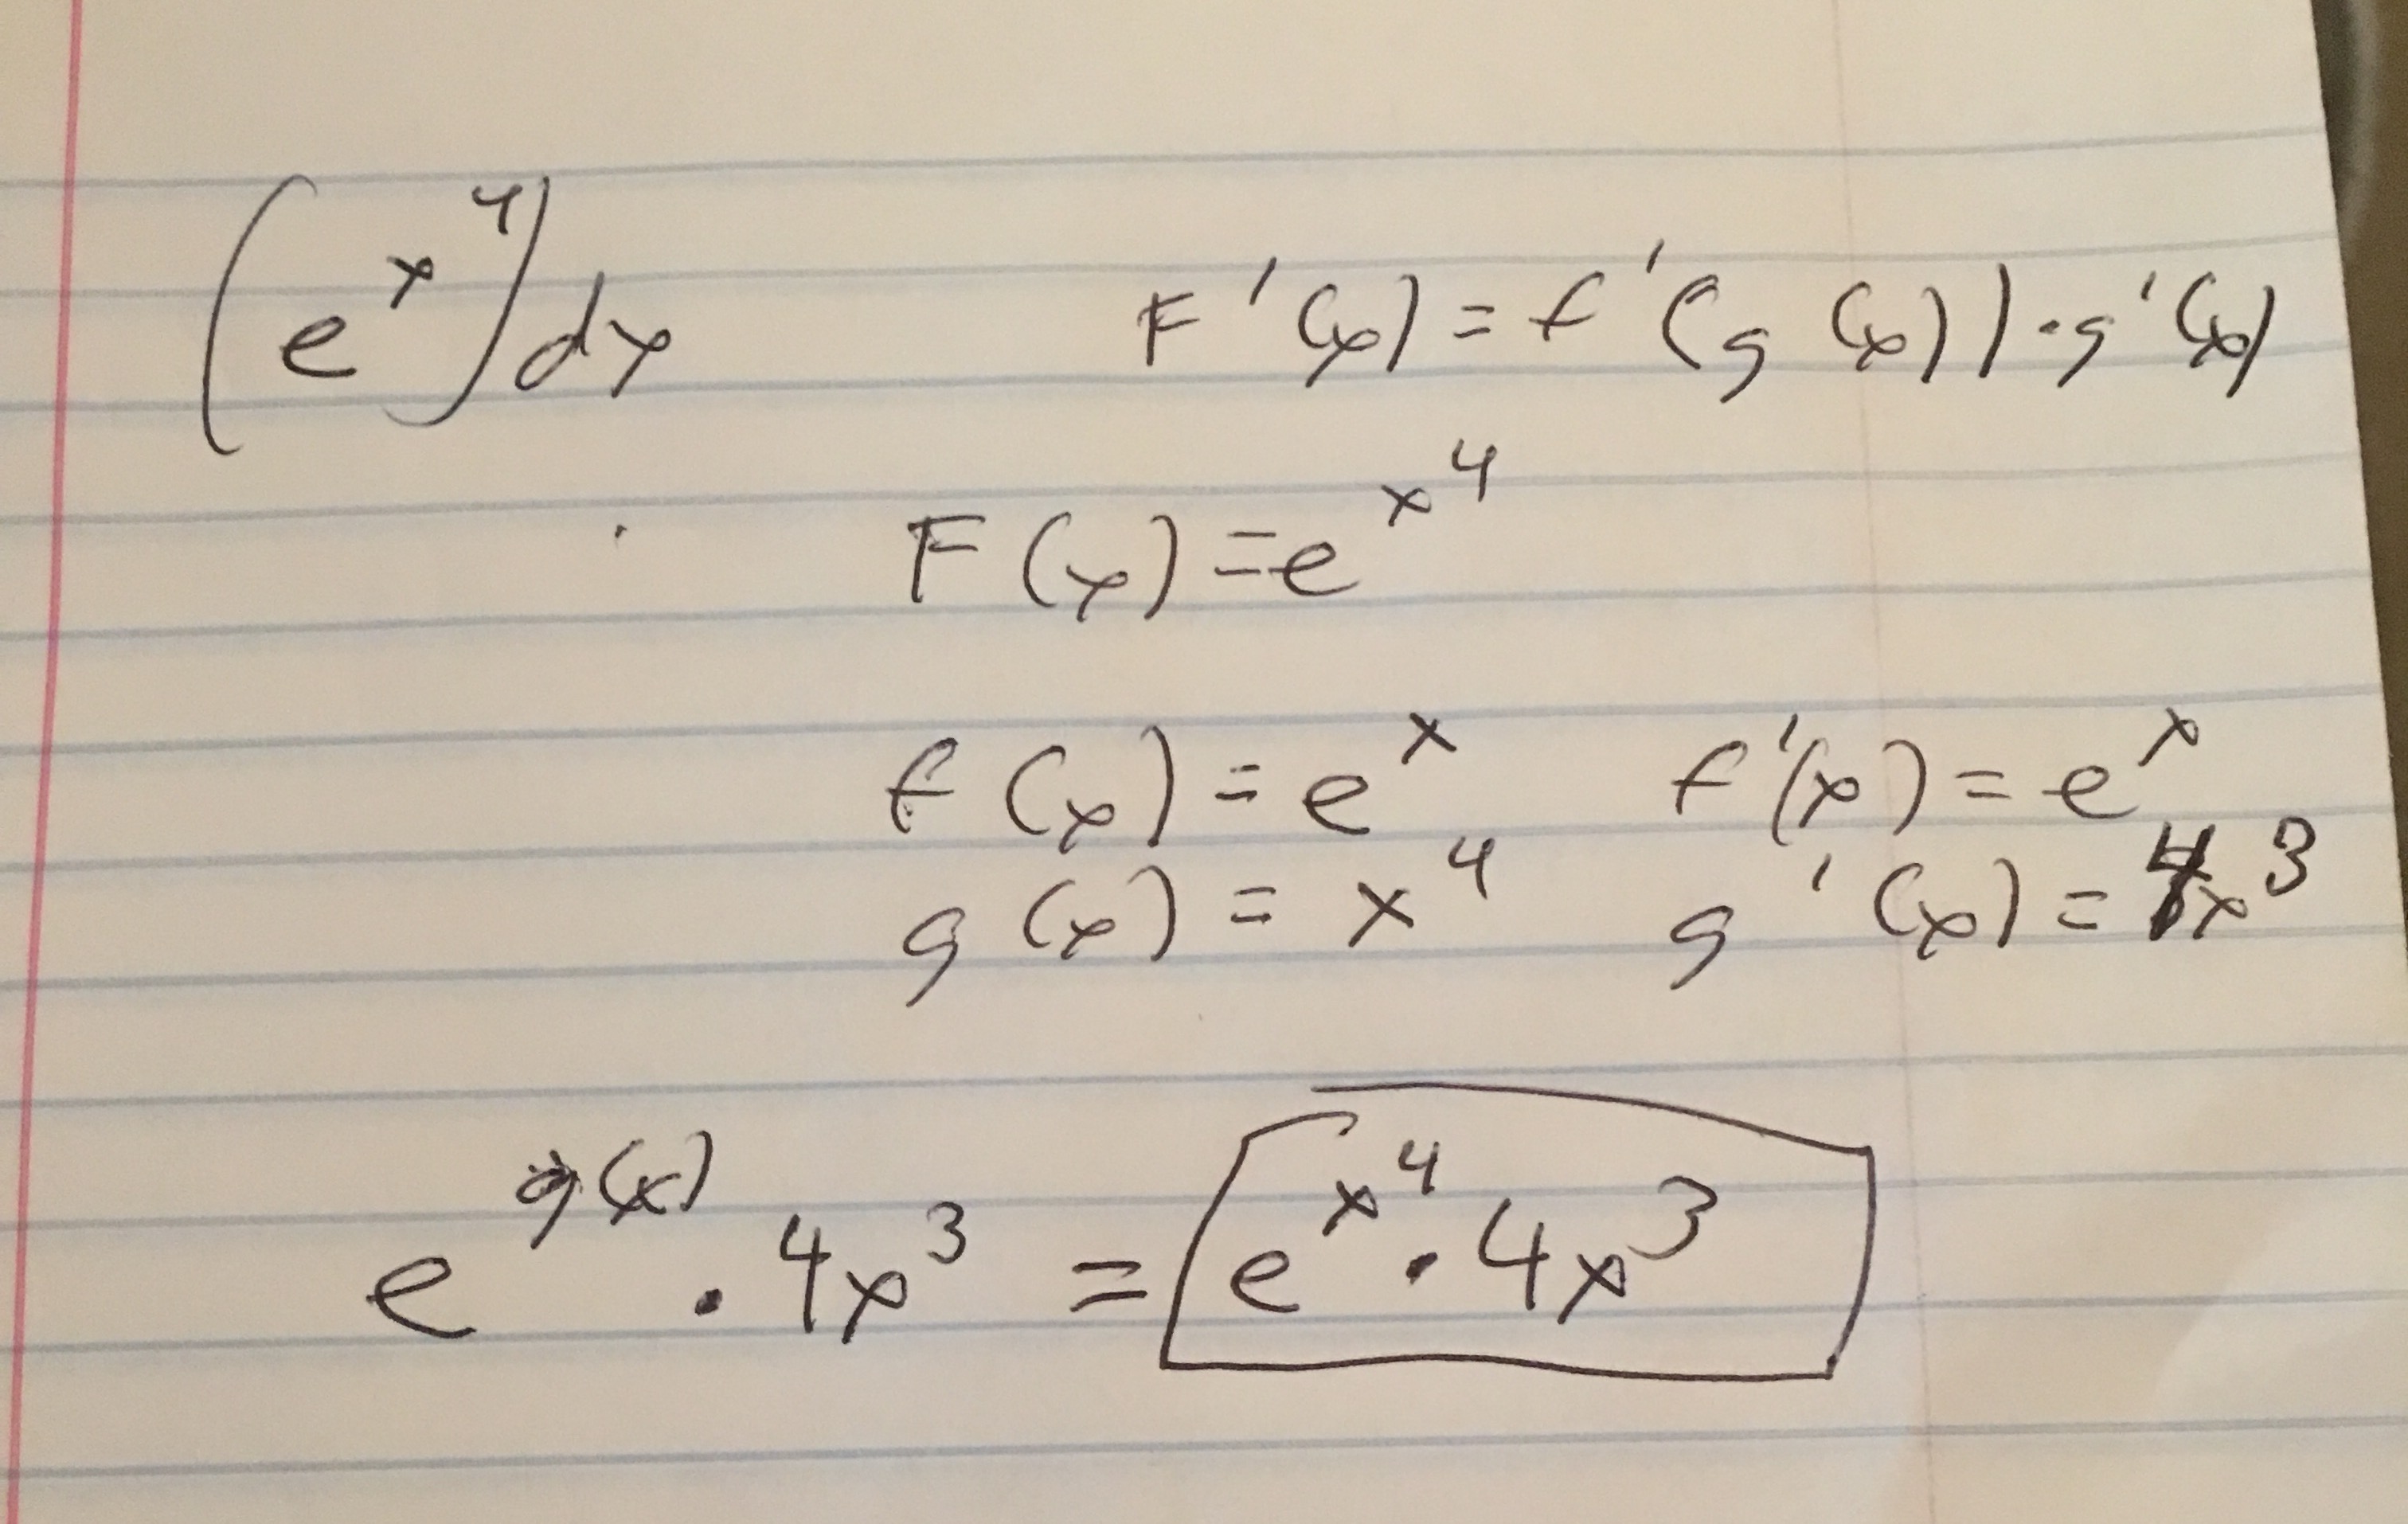 (e^x^4)dx F'(x) = f'(g(x))·g'(x)
F(x) = e^x^4
f(x) = e^x f'(x) = e^x
g(x) = x^4 g'(x) = 4x^3
e^g(x) · 4x^3 = e^x^4 · 4x^3